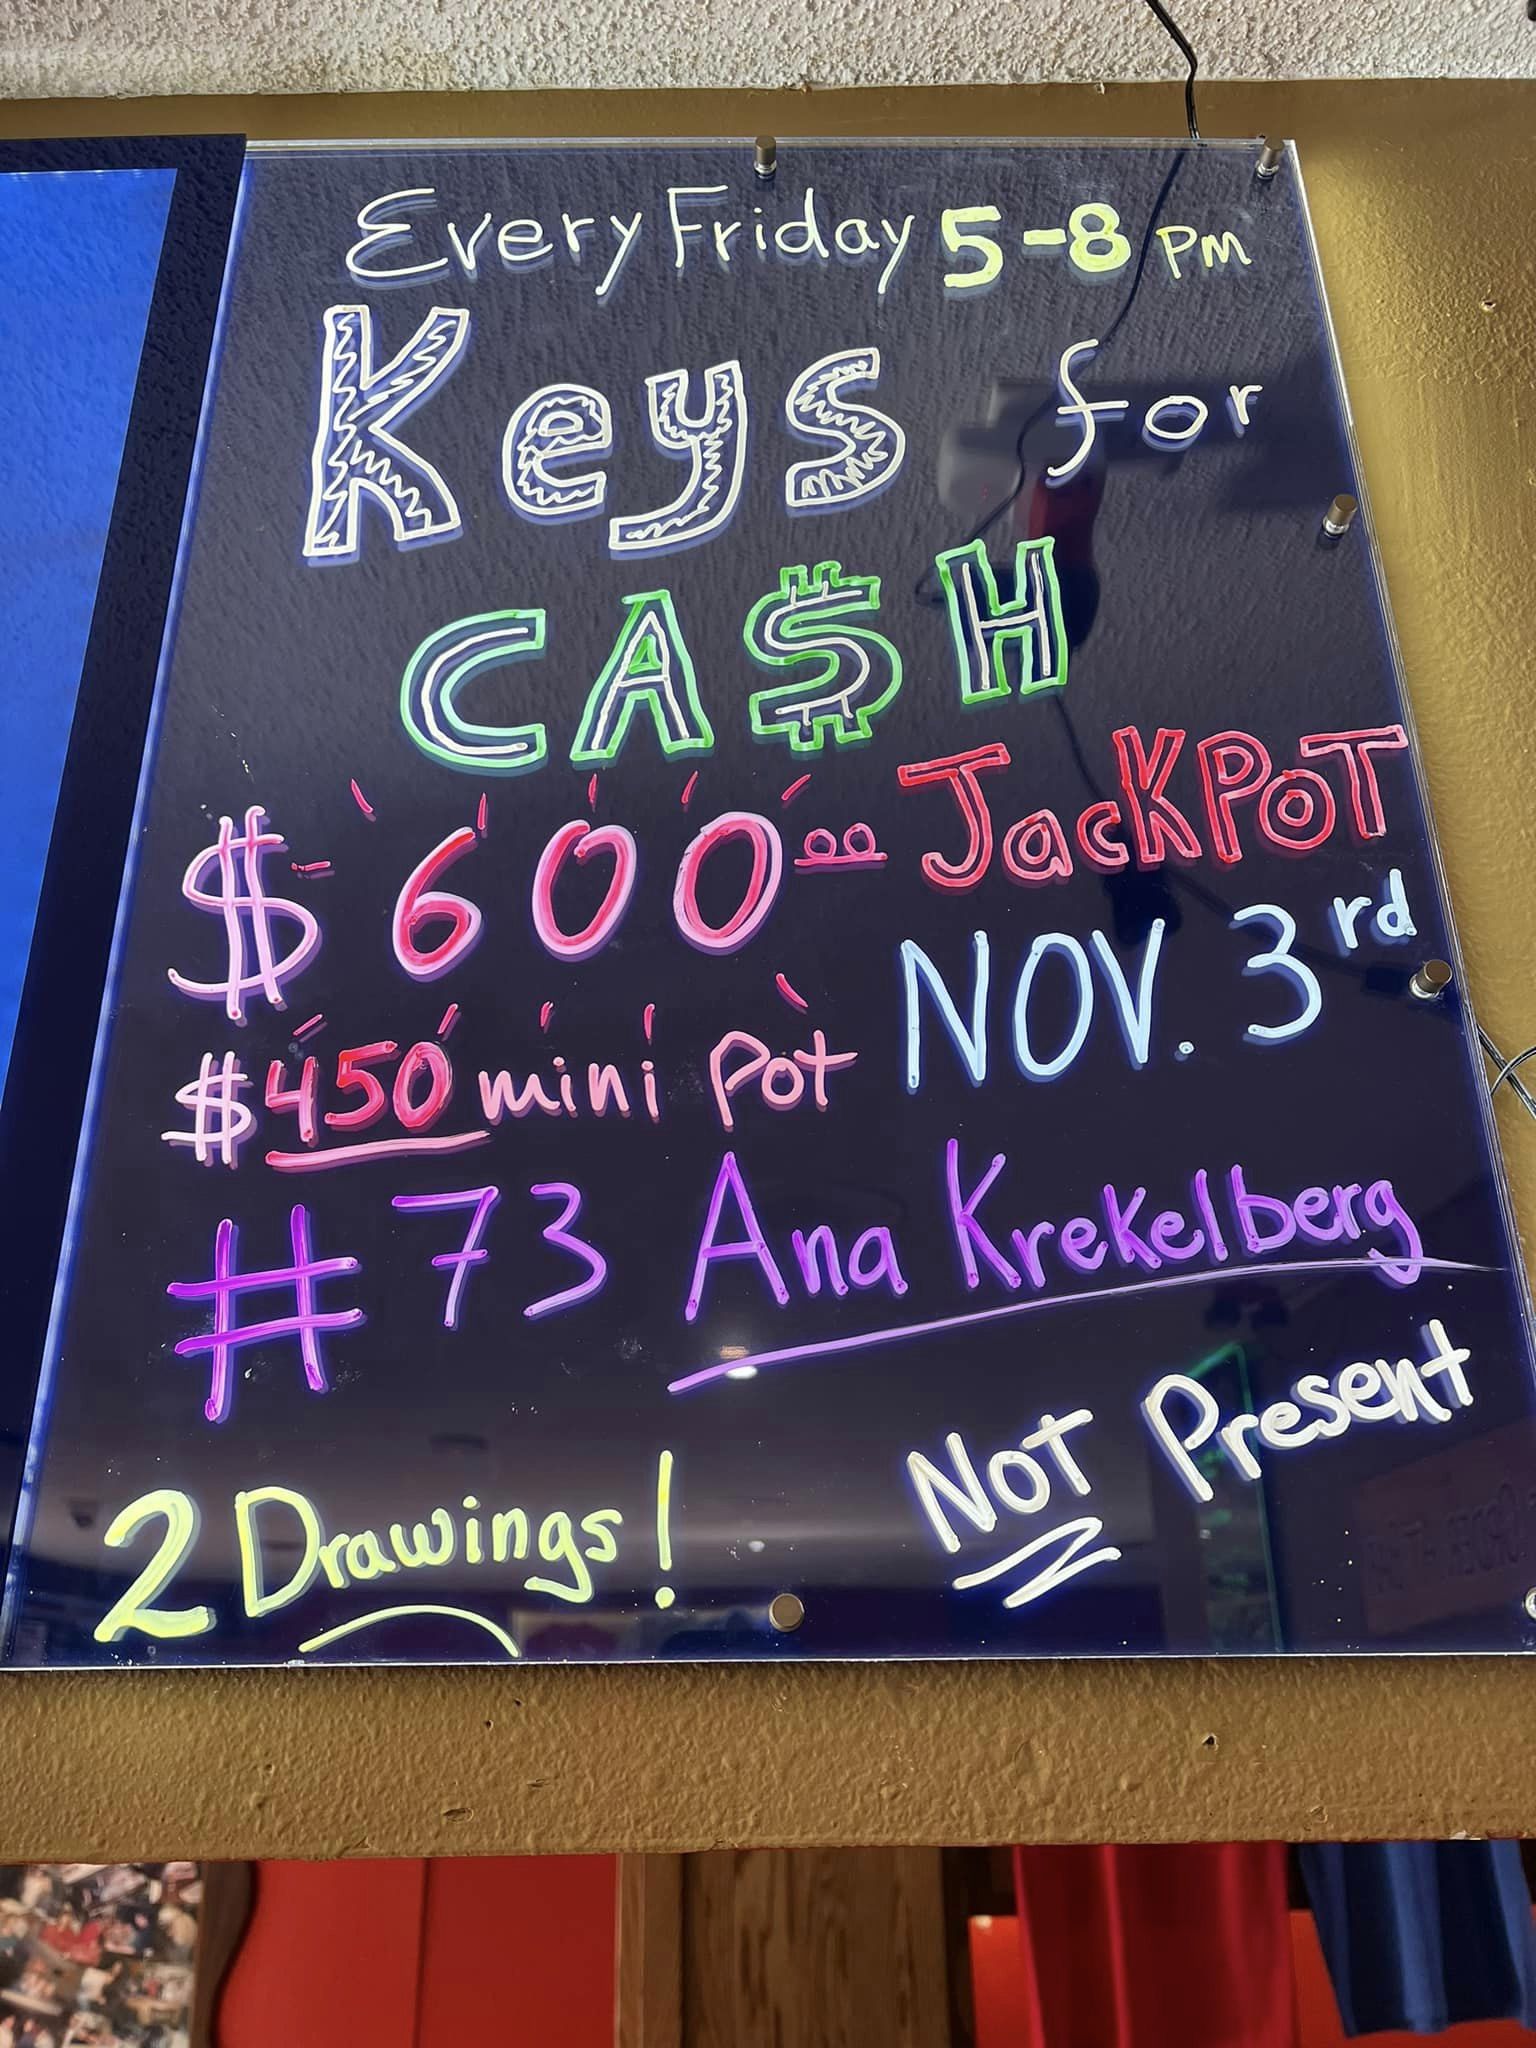 Every Friday 5-8 PM
Keys for
CA$H
$600.00 JackPOT
$450 mini Pot NOV. 3rd
#73 Ana Krekelberg
2 Drawings! NOT Present